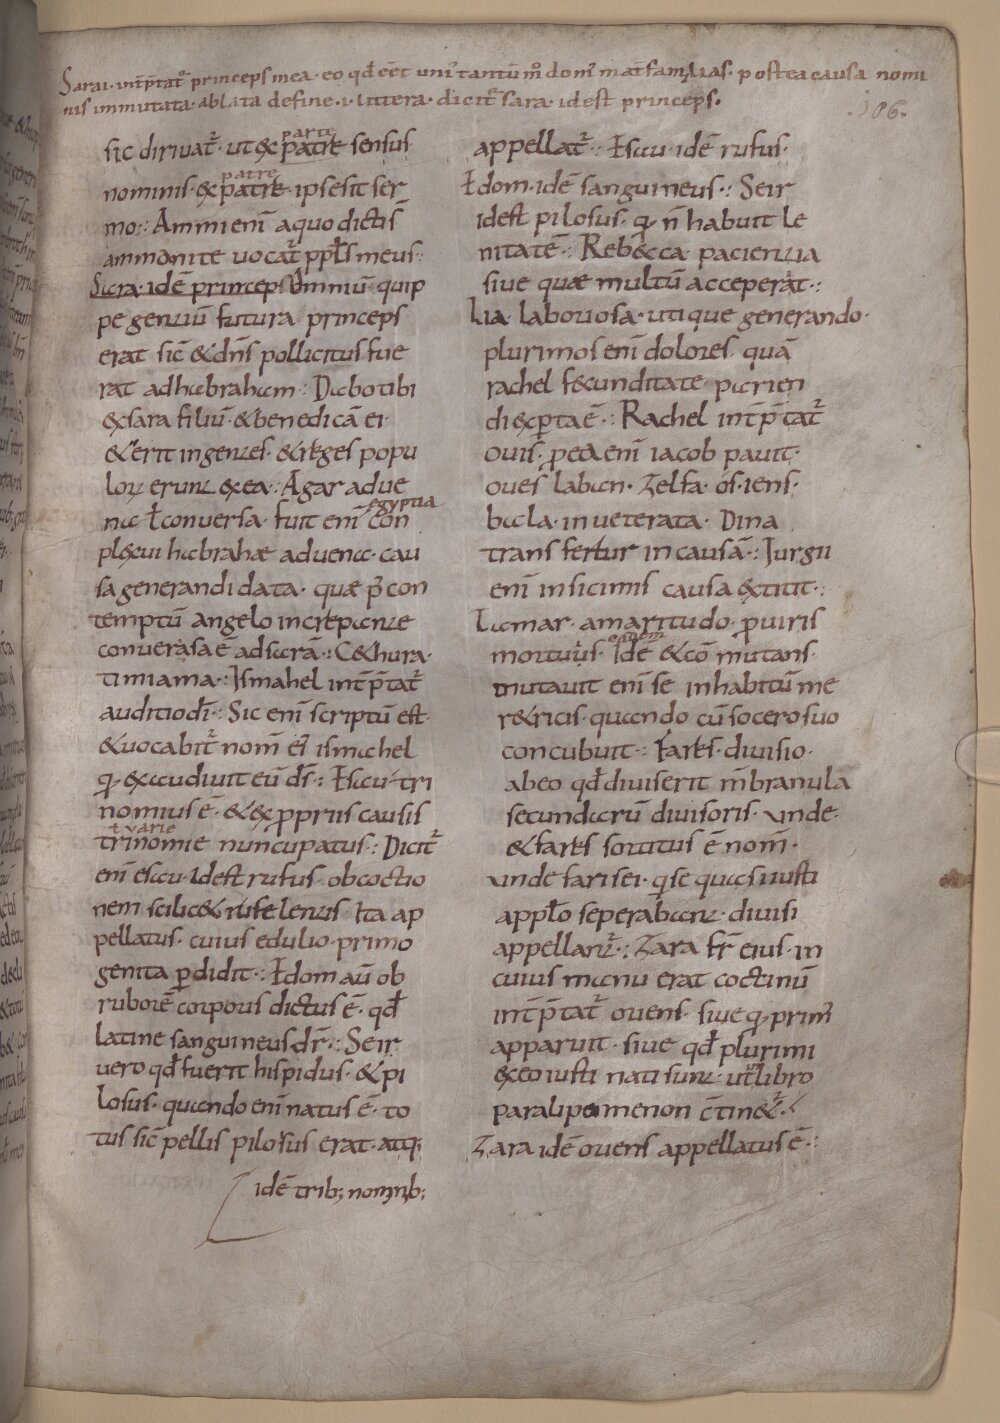 Sarai · int̄p̄tat᷑ princeps mea · eo qđ eēt uni᷑ tantū m̊ domi᷑ mat̄familias · postea causa nomi
nis immutata · ablata de fine · i · littera · dicit᷑ sara · id est princeps ·
· 106 ·
sic diriuat᷑ · ut & ex patre sensus
parte
nominis · & ex patre · ipse sit ser
patre
mo : Ammi enī a quo dictis̄
ammanite uocat᷑ ppłs meus :
Sara · idē princeps Omniū quip
pe gentiū futura princeps
erat sic̄ & dn̄s pollicitus fue
rat ad habraham : Dabo tibi
ex sara filiū · & benedicā ei ·
& erit in gentes · & reges popu
loꝝ erunt ex ea : Agar adue
na ł conuersa · fuit enī con
egyptia
plexui habrahæ aduena · cau
sa generandi data · quæ p̄ con
temptū angelo increpante
conuersa ē ad sarā : C&hura ·
timiama : Ismahel int̄p̄tat᷑
auditio dī : Sic enī scriptū est ·
& uocabit᷑ nom̄ ei᷑ ismahel
q · exaudiuit eū ds̄ : Esau · tri
nomius ē · & ex propriis causis
trinomie nuncupatus : Dicit᷑
ł varie
enī esau · id est rufus · ob coctio
nem scilic& rufe lentis ita ap
pellatus · cuius edulio · primo
genita p̱didit : Edom aū ob
ruborē corporis dictus ē · qđ
latine sanguineus dr̄ : Seir
uero qđ fuerit hispidus · & pi
losus · quando enī natus ē · to
tus sic̄ pellis pilosus erat · atq;
idē trib; nominib;
appellat᷑ : Esau · idē rufus ·
Edom · idē sanguineus : Seir
id est pilosus q · n̄ habuit le
nitatē : Rebecca · pacientia
siue quæ multū acceperat :
Lia · laboriosa · utique generando ·
plurimos enī dolores · quā
rachel fecunditate · parien
di experta ē : Rachel int̄p̄tat᷑
ouis · p̱ ea enī iacob pauit ·
oues laban · Zelfa · os · iens ·
bala · inueterata · Dina
transfertur in causā : Iurgii
enī in sicimis causa extitit :
Tamar · amaritudo · p̱ uiris
mortuis · Idē & cō mutans ·
eadem
mutauit enī se in habitū me
retricis · quando cū socero suo
concubuit : Fares · diuisio ·
ab eo qđ diuiserit m̄branula
secundarū diuisoris · unde ·
& fares sortitus ē nom̄ ·
unde farisei · q se quasi iusti
a pplo seperabant · diuisi
appellant᷑ : Zara fr̄ eius · in
cuius manu erat coctinū
int̄p̄tat᷑ oriens · siue q · prim᷑
apparuit · siue qđ plurimi
ex eo iusti nati sunt · ut libro
paralipomenon c̄tinet᷑ ·
Zara idē oriens appellatus ē :